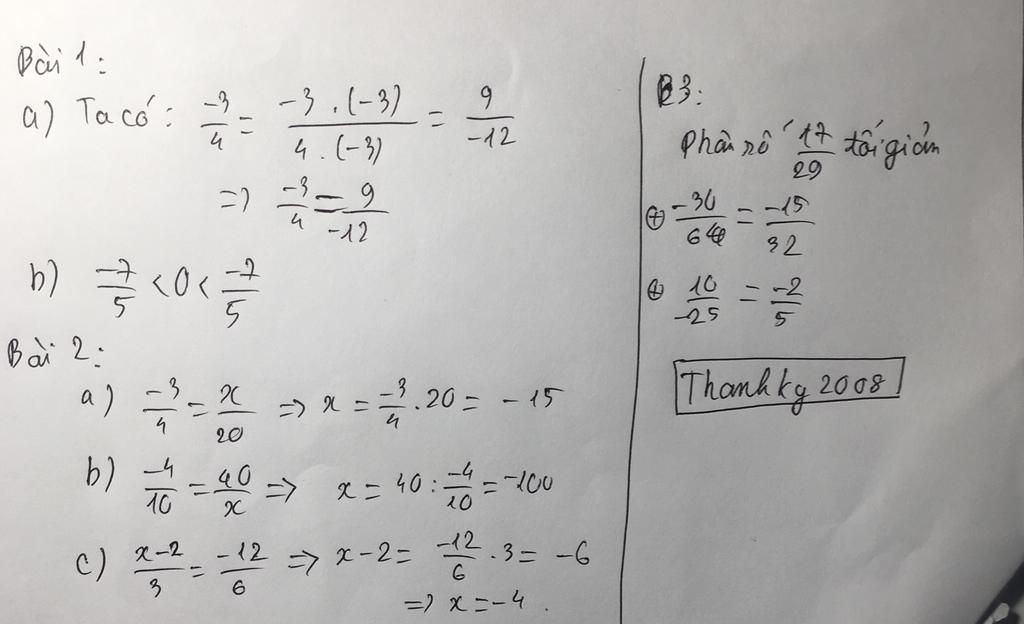 Bài 1:
a) Ta có: -3/4 = -3.(-3)/4.(-3) = 9/-12
=> -3/4 = 9/-12
b) -7/5 < 0 < -7/5
Bài 2:
a) -3/4 = x/20 => x = -3/4 . 20 = -15
b) -4/10 = 40/x => x = 40 : -4/10 = -100
c) x-2/3 = -12/6 => x-2 = -12/6 . 3 = -6
=> x = -4.
B3:
Phân số 17/29 tối giản
⊕ -30/64 = -15/32
⊕ 10/-25 = -2/5
Thanhkg2008